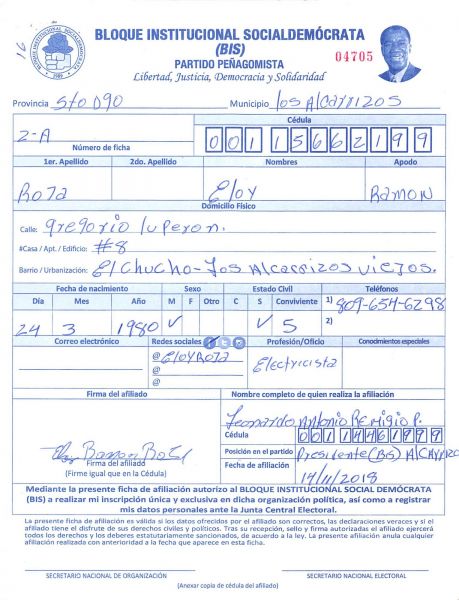 16
BLOQUE INSTITUCIONAL SOCIALDEMÓCRATA
(BIS)
04705
PARTIDO PEÑAGOMISTA
Libertad, Justicia, Democracia y Solidaridad
Provincia Sto Dgo Municipio Los Alcarrizos
2-A
Número de ficha
Cédula
00115662199
1er. Apellido 2do. Apellido Nombres Apodo
Rosa Eloy Ramon
Domicilio Físico
Calle: gregorio luperon.
#Casa / Apt. / Edificio: #8
Barrio / Urbanización: El Chucho-Los Alcarrizos Viejos.
Fecha de nacimiento Sexo Estado Civil Teléfonos
Día Mes Año M F Otro C S Conviviente 1) 809-654-6298
24 3 1980 ✓ ✓ 5 2)
Correo electrónico Redes sociales Profesión/Oficio Conocimientos especiales
@EloyRosa Electricista
@
@
Firma del afiliado Nombre completo de quien realiza la afiliación
Leonardo Antonio Remigio P.
Cédula
Firma del afiliado
(Firme igual que en la Cédula)
Posición en el partido Presidente (BIS) Alcarrizo
Fecha de afiliación 14/11/2018
Mediante la presente ficha de afiliación autorizo al BLOQUE INSTITUCIONAL SOCIAL DEMÓCRATA
(BIS) a realizar mi inscripción única y exclusiva en dicha organización política, así como a registrar
mis datos personales ante la Junta Central Electoral.
La presente ficha de afiliación es válida si los datos ofrecidos por el afiliado son correctos, las declaraciones veraces y si el
afiliado tiene el disfrute de sus derechos civiles y políticos. Tras su recepción, sello y firma autorizadas el afiliado ejercerá
todos los derechos y los deberes estatutariamente sancionados, de acuerdo a la ley. La presente afiliación anula cualquier
afiliación realizada con anterioridad a la fecha que aparece en esta ficha.
SECRETARIO NACIONAL DE ORGANIZACIÓN SECRETARIO NACIONAL ELECTORAL
(Anexar copia de cédula del afiliado)